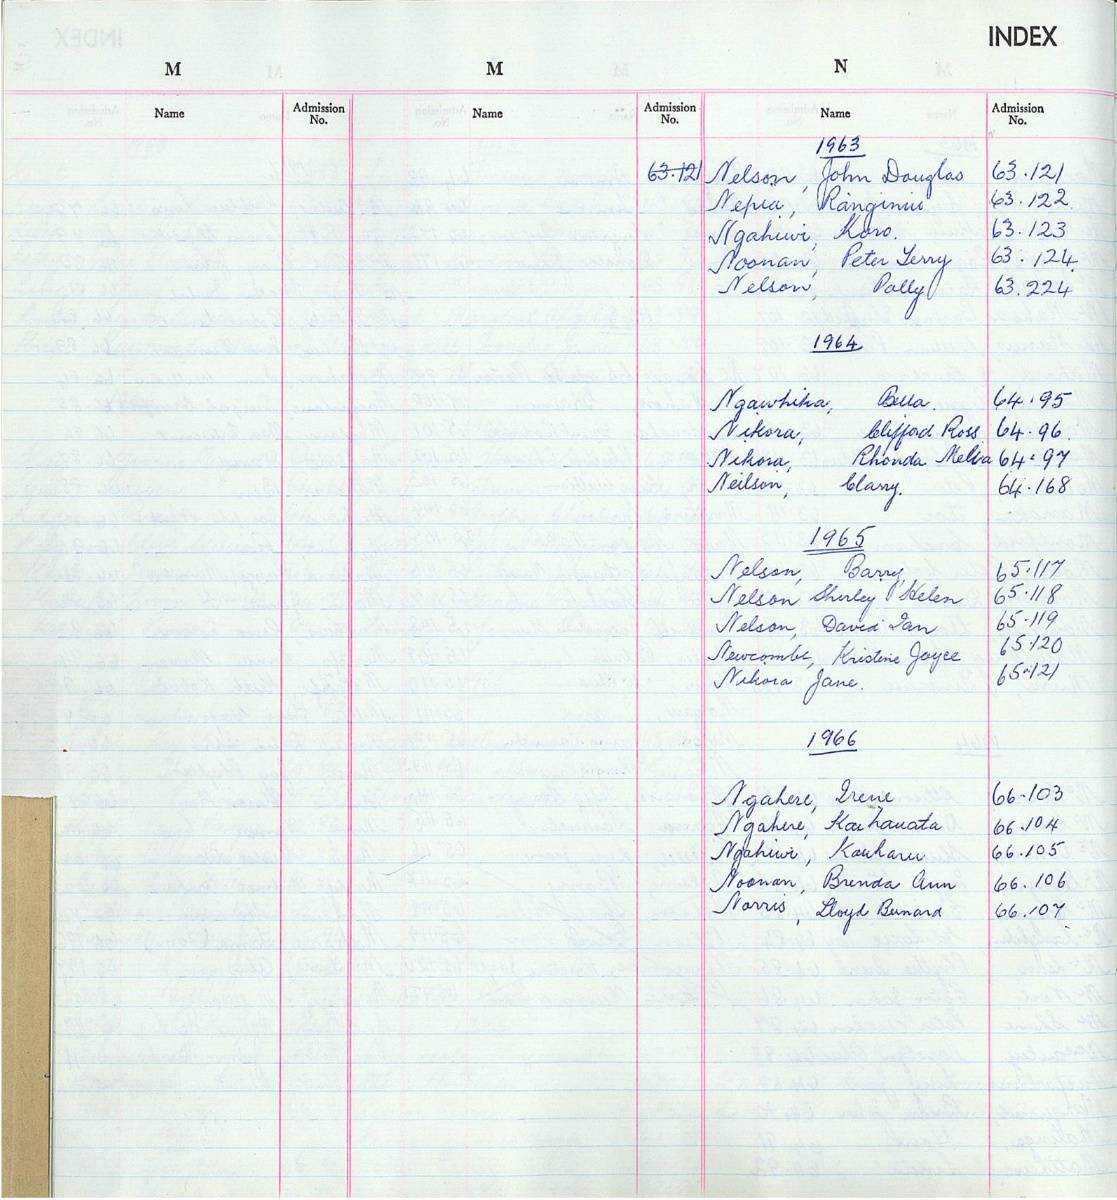 INDEX
M M N
Name Admission No. Name Admission No. Name Admission No.
1963
63.121 Nelson, John Douglas 63.121
Nepia, Ranginui 63.122
Ngahiwi, Koro. 63.123
Noonan, Peter Terry 63.124
Nelson, Polly 63.224
1964
Ngawhika, Bella. 64.95
Nikora, Clifford Ross 64.96.
Nikora, Rhonda Melva 64.97
Neilson, Clarry. 64.168
1965
Nelson, Barry, 65.117
Nelson Shirley Helen 65.118
Nelson, David Ian 65.119
Newcombe, Kristene Joyce 65.120
Nikora Jane. 65.121
1966
Ngahere, Irene 66.103
Ngahere, 66.104
Ngahiwi, 66.105
Noonan, Brenda Ann 66.106
Norris, Lloyd Bernard 66.107